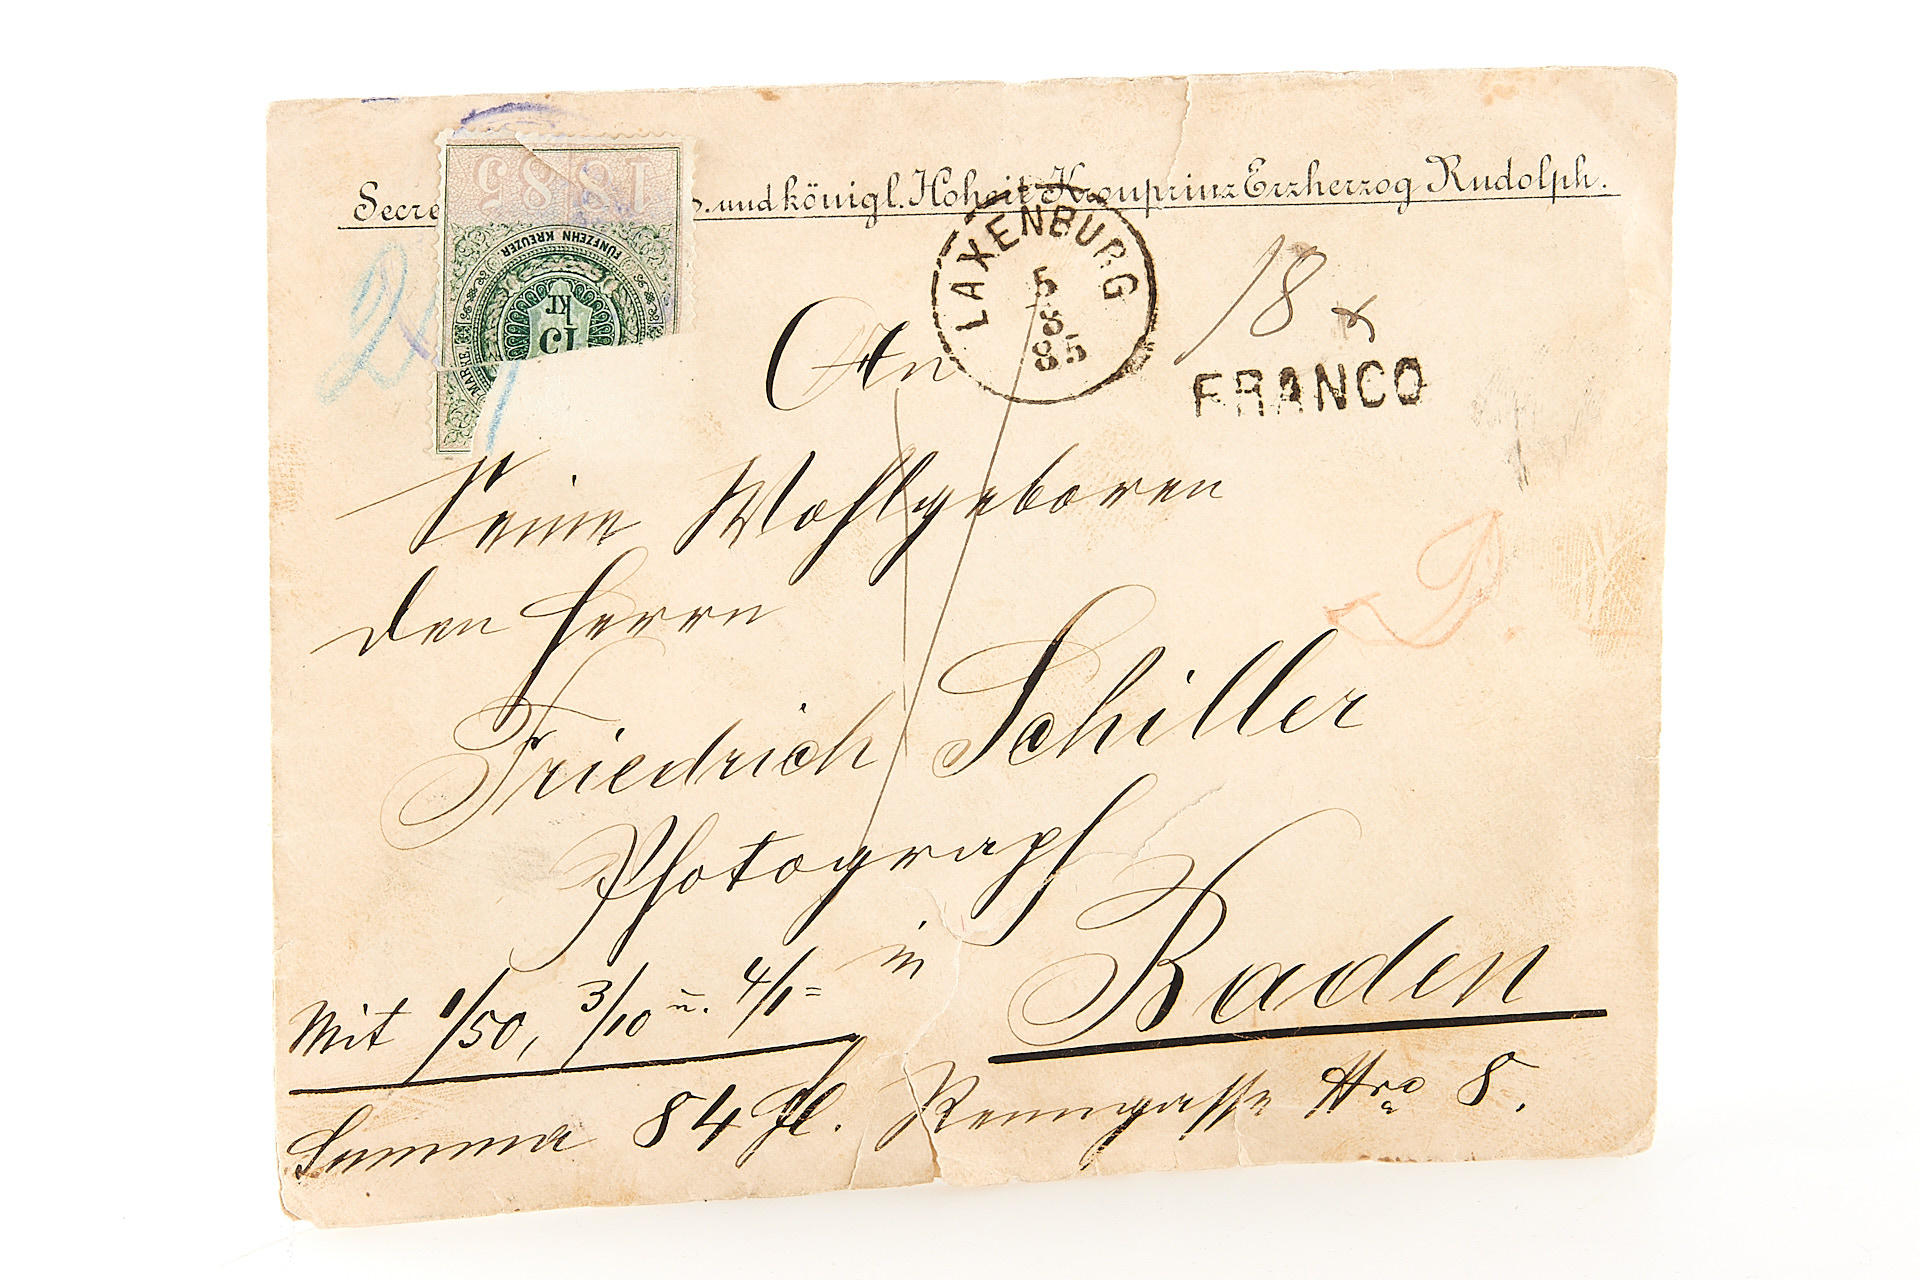 Secre s. und königl. Hoheit Kronprinz Erzherzog Rudolph.
1885
FÜNFZEHN KREUZER
15
kr
MARKE
LAXENBURG
5
8
85
18 x
FRANCO
An
Seine Wohlgeboren
den Herrn
Friedrich Schiller
Photograph
in
Baden
Mit 1/50, 3/10 u. 4/1=
Summa 84 fl. Renngasse Nro 8.